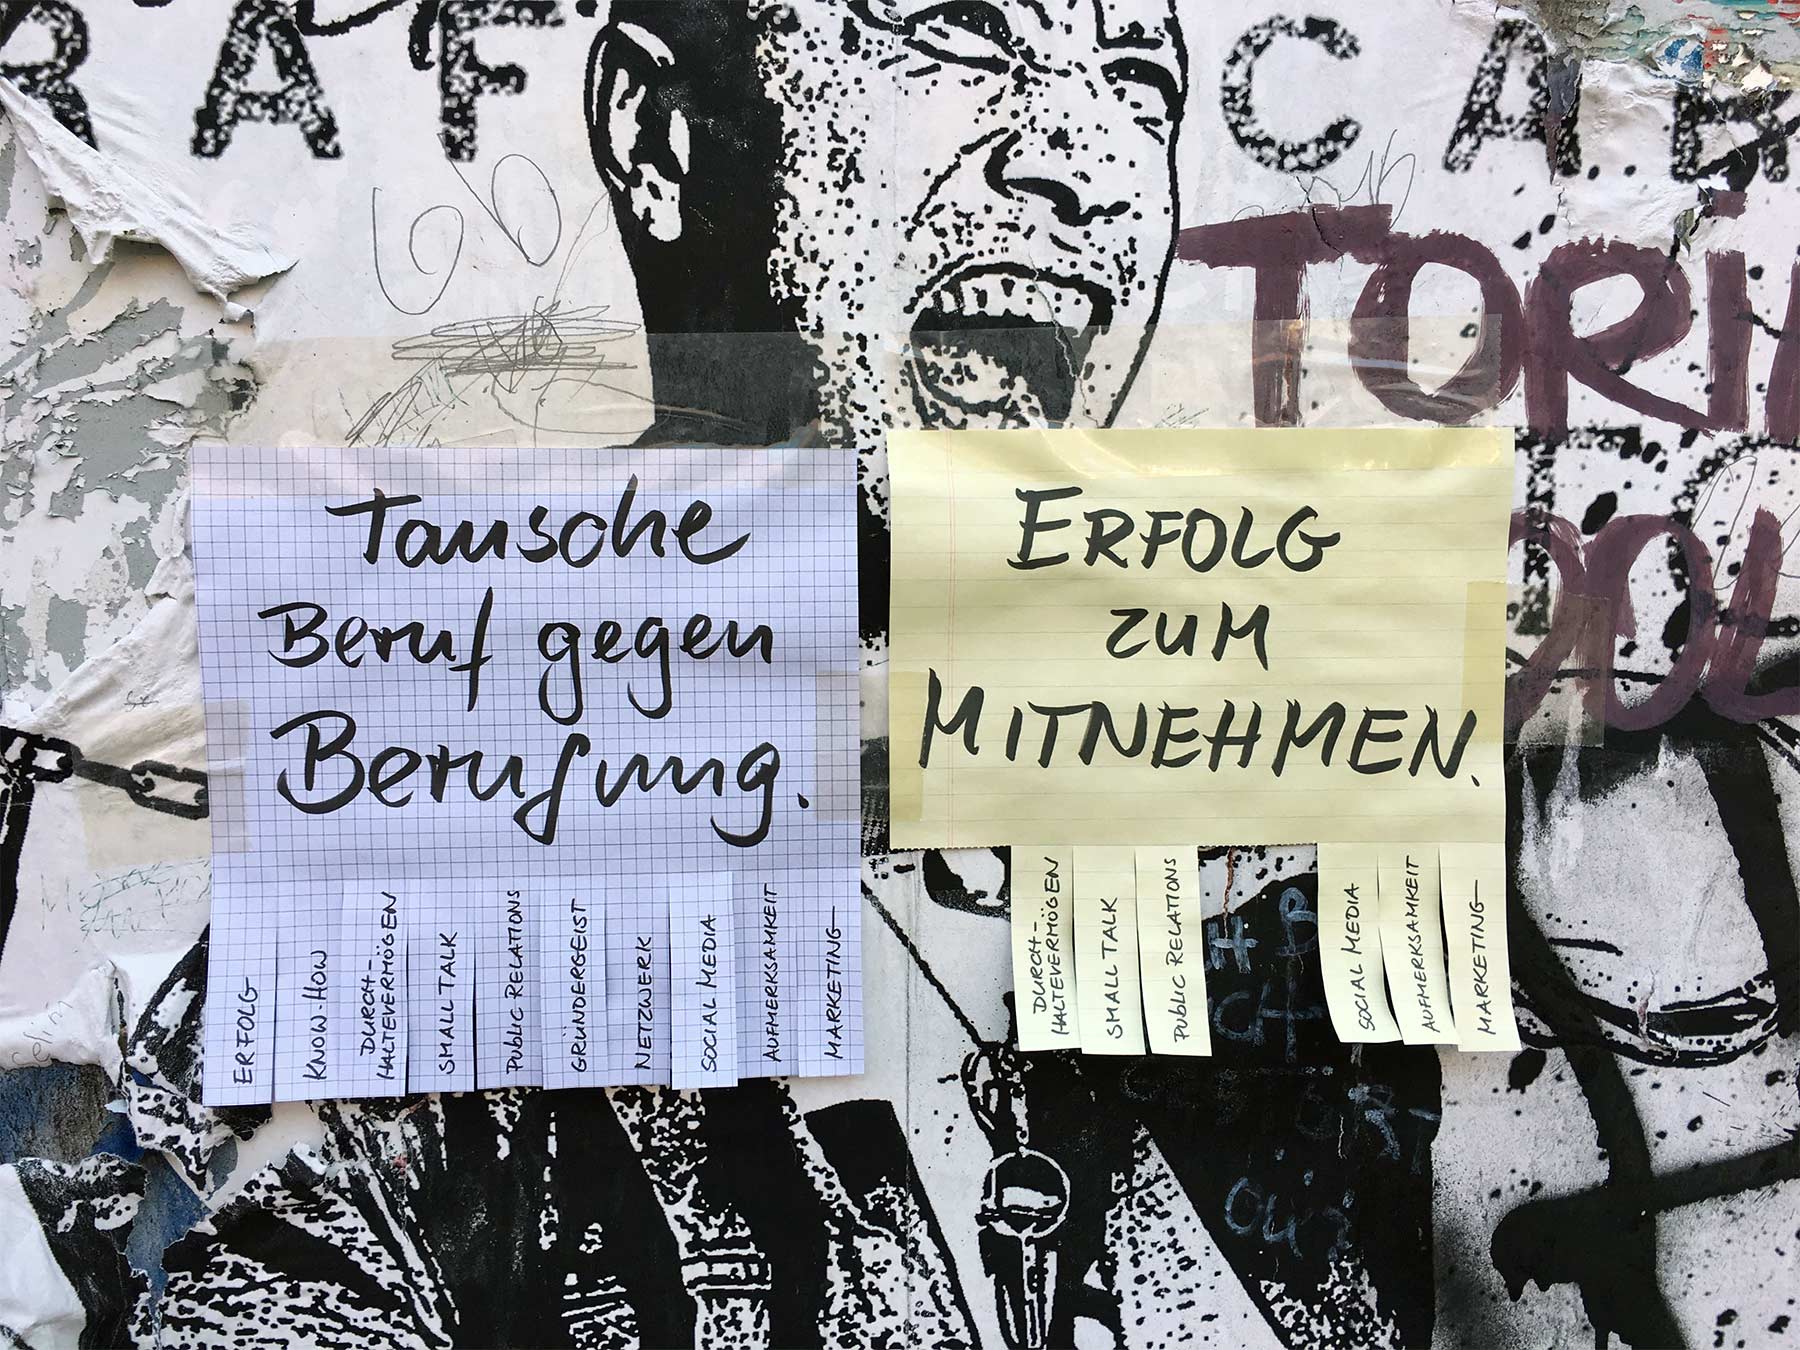 RAF
CAR
TORi
Tausche
Beruf gegen
Berufung.
ERFOLG
ZUM
MITNEHMEN.
ERFOLG
KNOW-HOW
DURCH-
HALTEVERMÖGEN
SMALL TALK
PUBLIC RELATIONS
GRÜNDERGEIST
NETZWERK
SOCIAL MEDIA
AUFMERKSAMKEIT
MARKETING
DURCH-
HALTEVERMÖGEN
SMALL TALK
PUBLIC RELATIONS
SOCIAL MEDIA
AUFMERKSAMKEIT
MARKETING